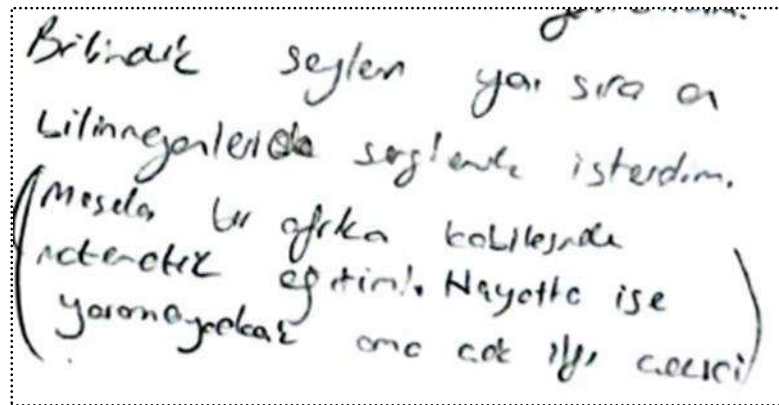 Bilindik şeylerin yanı sıra en
bilinmeyenleride söylemek isterdim.
(Mesela bir afrika kabilesinde
matematik eğitimi. Hayatta işe
yaramayacak ama çok ilgi çekici)